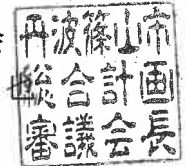 丹波篠山市
総合計画
審議会長